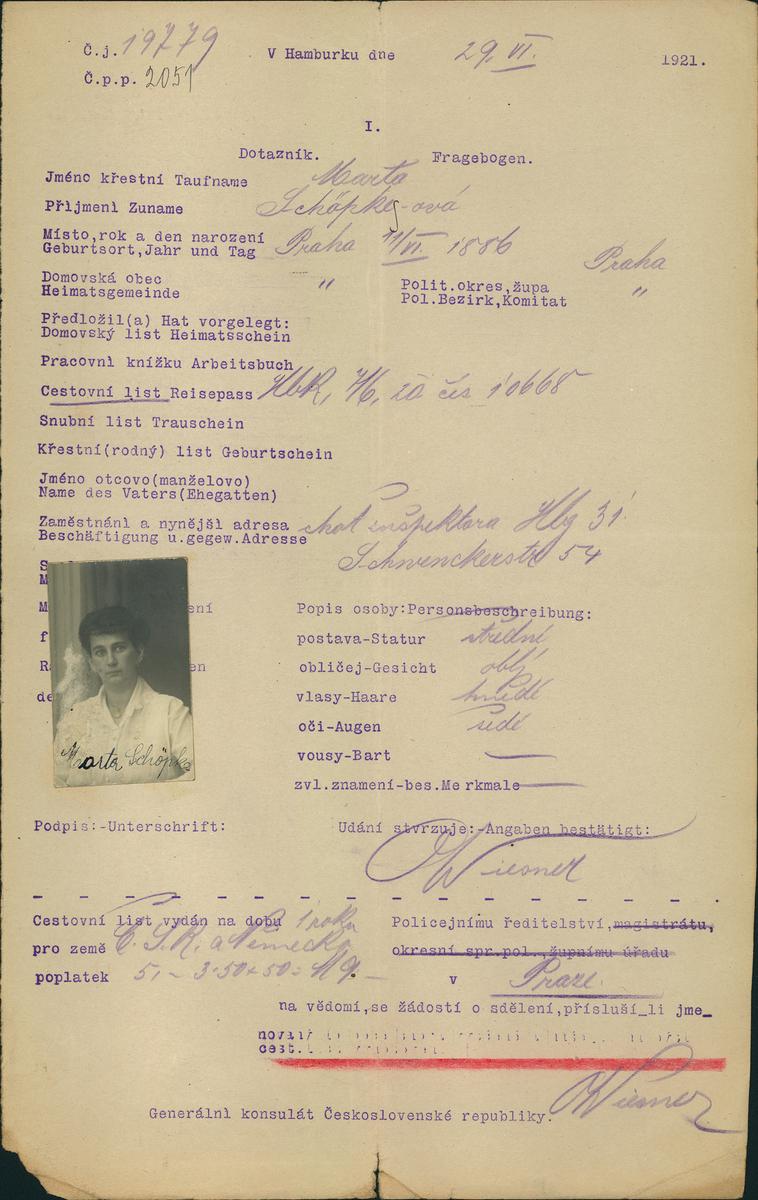 Č.j. 19779 V Hamburku dne 29. VI. 1921.
Č.p.p. 2051
I.
Dotazník. Fragebogen.
Jméno křestní Taufname Marta
Příjmení Zuname Schöpke-ová
Místo,rok a den narození
Geburtsort,Jahr und Tag Praha VI. 1886 Praha
Domovská obec " Polit.okres,župa "
Heimatsgemeinde Pol.Bezirk,Komitat
Předložil(a) Hat vorgelegt:
Domovský list Heimatsschein
Pracovní knížku Arbeitsbuch
Cestovní list Reisepass čís 10668
Snubní list Trauschein
Křestní(rodný) list Geburtschein
Jméno otcovo(manželovo)
Name des Vaters(Ehegatten)
Zaměstnání a nynější adresa choť inspektora Hbg 31
Beschäftigung u.gegew.Adresse Schwenckerstr 54
Popis osoby:Personsbeschreibung:
postava-Statur střední
obličej-Gesicht oblý
vlasy-Haare hnědé
oči-Augen šedé
vousy-Bart —
zvl.znamení-bes.Merkmale —
Marta Schöpke
Podpis:-Unterschrift: Udání stvrzuje:-Angaben bestätigt:
Wiesner
Cestovní list vydán na dobu 1 roku Policejnímu ředitelství,magistrátu,
pro země Č.S.R. a Německo okresní spr.pol.,župnímu úřadu
poplatek 5,- 3·50+50= M9.- v Praze.
na vědomí,se žádostí o sdělení,přísluší_li jme_
cest.
Generální konsulát Československé republiky. Wiesner